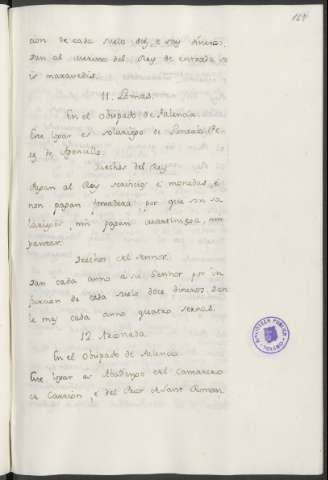 124
cion de cada suelo dos e soy dineros
dan al merino del Rey de entrada
is maravedis.
11. Lomas.
En el obispado de Palencia
Este logar es solariego de Gonzalo Pe
rez de
Derechos del Rey
Pagan al Rey servicios e monedas, e
non pagan fonsadera por que son so
lariegos, nin pagan martiniega, nin
yantar.
Derechos del sennor.
Dan cada anno a su Sennor por in
furcion de cada suelo doce dineros, dan
le mas cada anno quatro sernas.
12. Arconada
En el Obispado de Palencia
Este logar es Abadengo del Camarero
de Carrion, e del Prior de Sant Roman.
BIBLIOTECA PUBLICA
TOLEDO